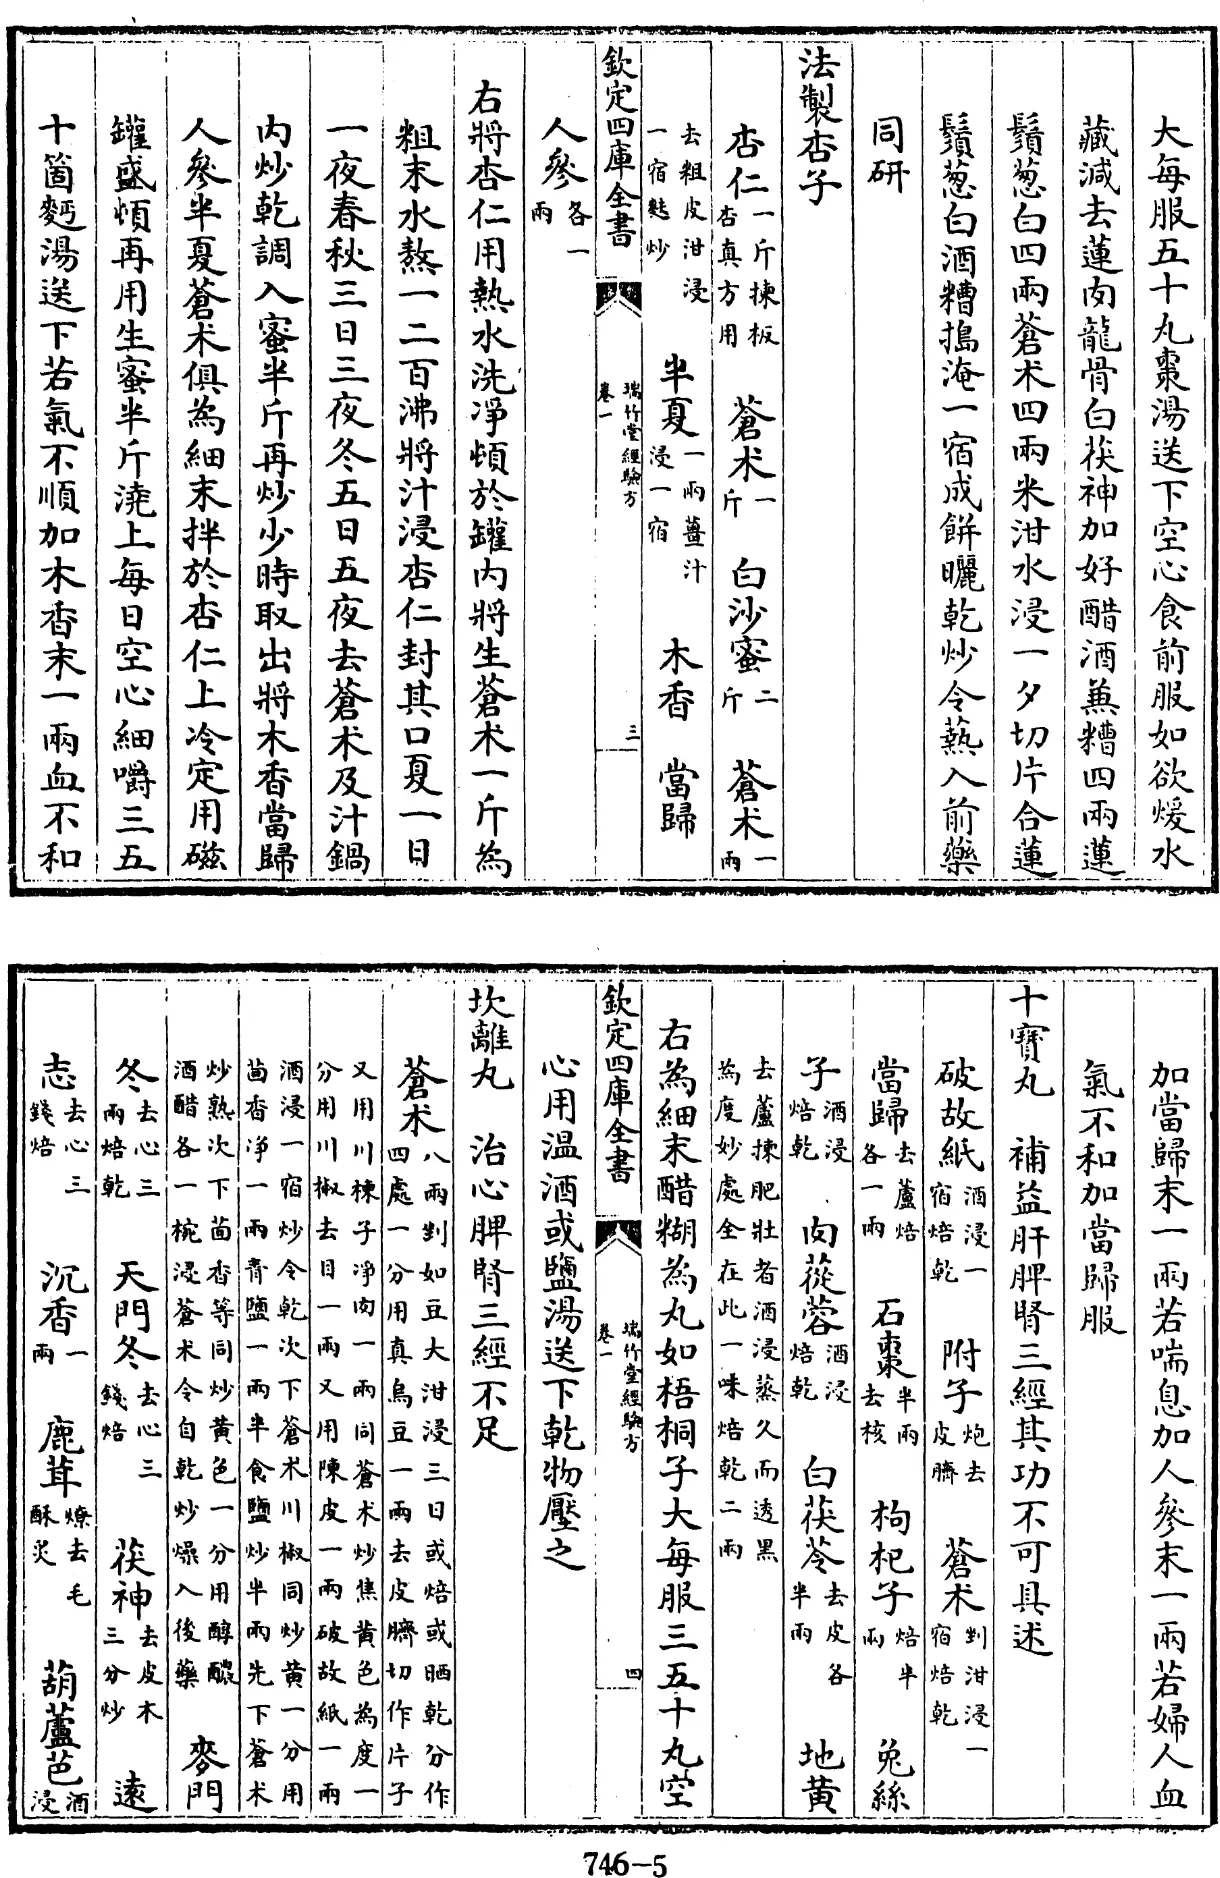 大每服五十丸棗湯送下空心食前服如欲煖水
藏減去蓮肉龍骨白茯神加好醋酒兼糟四兩蓮
鬚葱白四兩蒼术四兩米泔水浸一夕切片合蓮
鬚葱白酒糟搗淹一宿成餅曬乾炒令熱入前藥
同研
法製杏子
杏仁一斤揀板杏真方用 蒼术一斤 白沙蜜二斤 蒼术一兩
去粗皮泔浸一宿麩炒 半夏一兩薑汁浸一宿 木香 當歸
欽定四庫全書 瑞竹堂經驗方卷一 三
人參各一兩
右將杏仁用熱水洗淨頓於罐内將生蒼术一斤為
粗末水熬一二百沸將汁浸杏仁封其口夏一日
一夜春秋三日三夜冬五日五夜去蒼术及汁鍋
内炒乾調入蜜半斤再炒少時取出將木香當歸
人參半夏蒼术俱為細末拌於杏仁上冷定用磁
罐盛頓再用生蜜半斤澆上每日空心細嚼三五
十箇麫湯送下若氣不順加木香末一兩血不和
加當歸末一兩若喘息加人參末一兩若婦人血
氣不和加當歸服
十寶丸 補益肝脾腎三經其功不可具述
破故紙酒浸一宿焙乾 附子炮去皮臍 蒼术剉泔浸一宿焙乾
當歸去蘆焙各一兩 石棗半兩去核 枸杞子焙半兩 兔絲
子酒浸焙乾 肉蓯蓉酒浸焙乾 白茯苓去皮各半兩 地黄
去蘆揀肥壯者酒浸蒸久而透黑為度妙處全在此一味焙乾二兩
右為細末醋糊為丸如梧桐子大每服三五十丸空
欽定四庫全書 瑞竹堂經驗方卷一 四
心用温酒或鹽湯送下乾物壓之
坎離丸 治心脾腎三經不足
蒼术八兩剉如豆大泔浸三日或焙或晒乾分作四處一分用真烏豆一兩去皮臍切作片子
又用川楝子淨肉一兩同蒼术炒焦黄色為度一分用川椒去目一兩又用陳皮一兩破故紙一兩
酒浸一宿炒令乾次下蒼术川椒同炒黄一分用茴香淨一兩青鹽一兩半食鹽炒半兩先下蒼术
炒熟次下茴香等同炒黄色一分用醇醲酒醋各一椀浸蒼术令自乾炒燥入後藥 麥門
冬去心三兩焙乾 天門冬去心三錢焙 茯神去皮木三分炒 遠
志去心三錢焙 沉香一兩 鹿茸燎去毛酥炙 葫蘆芭酒浸
746-5